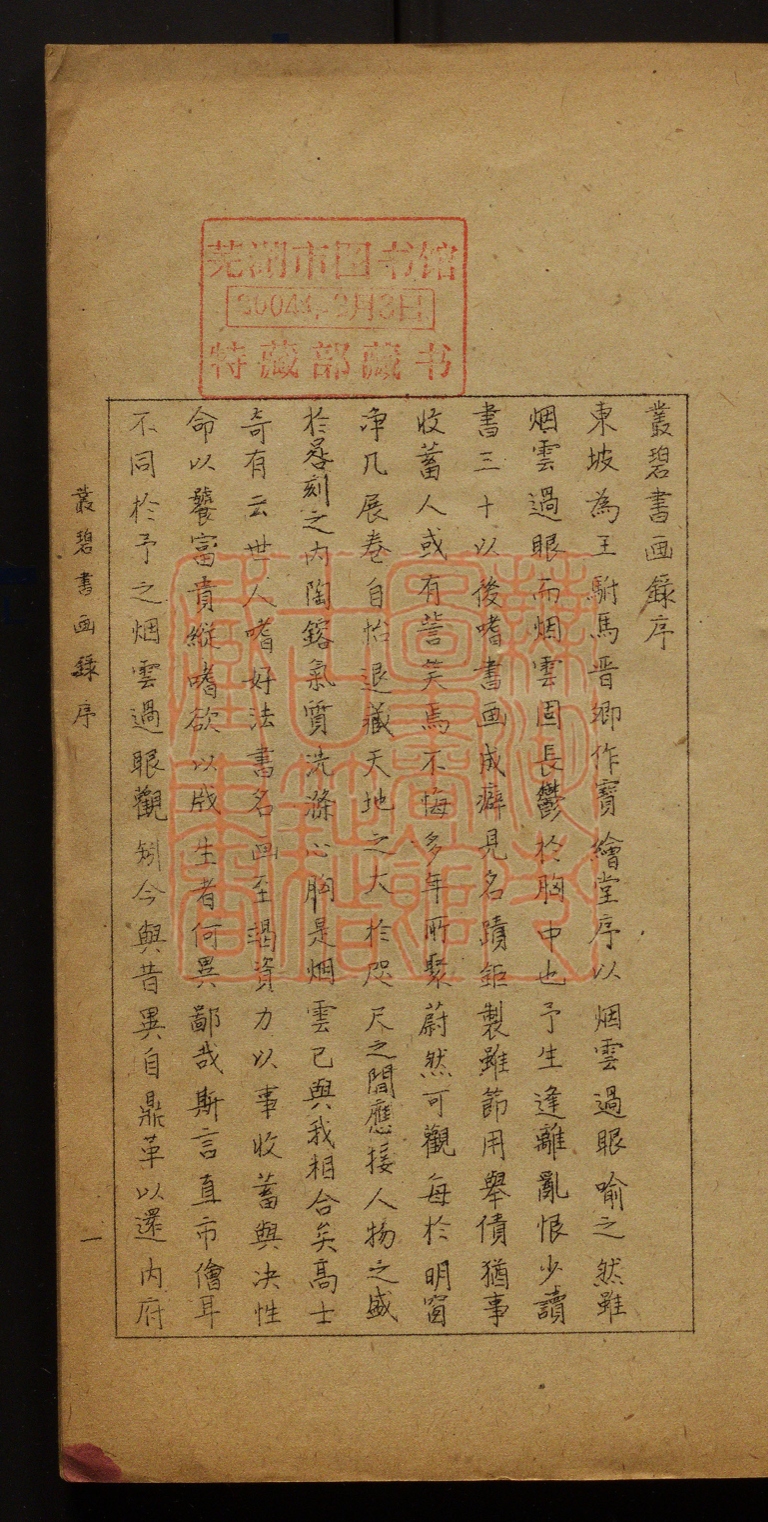 叢碧書画錄序
東坡為王駙馬晋卿作寶繪堂序以烟雲過眼喻之然雖
烟雲過眼而烟雲固長鬱於胸中也予生逢離亂恨少讀
書三十以後嗜書画成癖見名蹟鉅製雖節用舉債猶事
收蓄人或有訾笑焉不悔多年所聚蔚然可觀每於明窗
净几展卷自怡退藏天地之大於咫尺之間應接人物之盛
於晷刻之内陶鎔氣質洗滌心胸是烟雲已與我相合矣高士
奇有云世人嗜好法書名画至竭資力以事收蓄與决性
命以饕富貴縱嗜欲以戕生者何異鄙哉斯言直市儈耳
不同於予之烟雲過眼觀矧今與昔異自鼎革以還内府
叢碧書画錄序
一
芜湖市图书馆
2004年9月3日
特藏部藏书